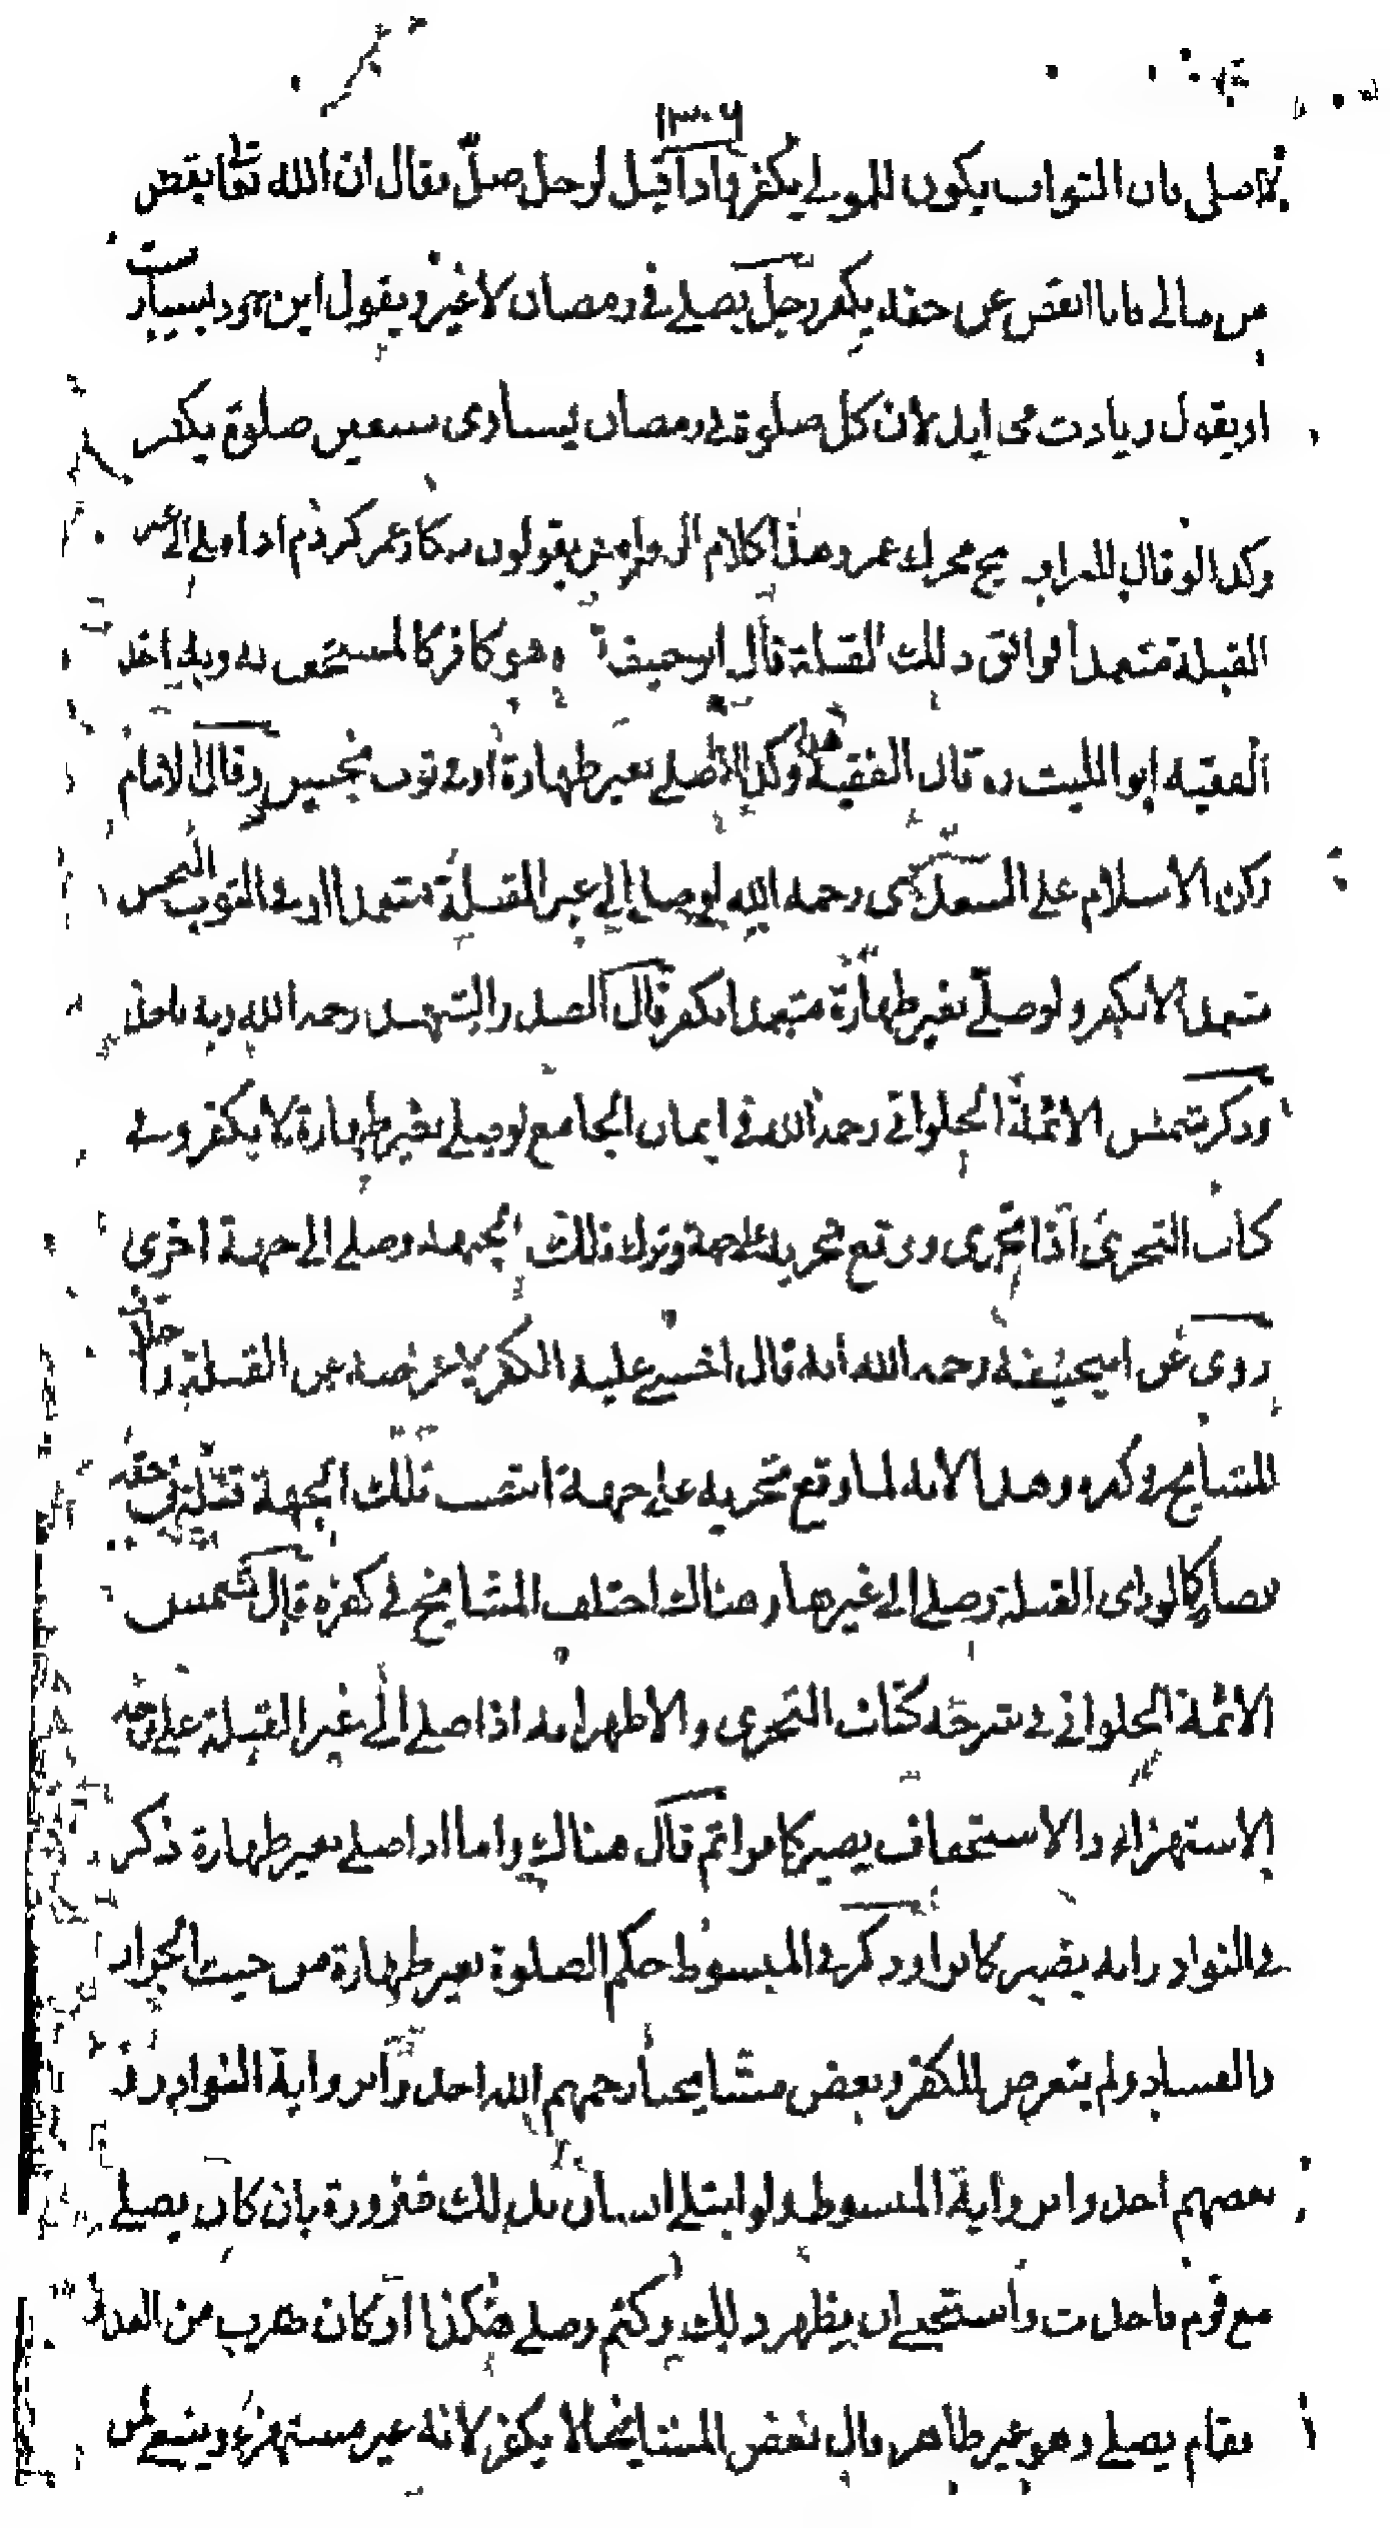 ١٣٠٦
لا اصلى فان الثواب يكون للمولى يكفر واذا قيل لرجل صلّ فقال ان الله تعالى نقص
من مالى فانا انقص عن حقه يكفر رجل يصلى فى رمضان لا غير ويقول اين خود بسيارست
او يقول زيادت مى ايد لان كل صلوة فى رمضان يساوى سبعين صلوة يكفر
وكذا لو قال وهذا كلام يقولون كردم اذا صلى الى غير
القبلة متعمدا فوافق ذلك القبلة قال ابو حنيفة هو كافر كالمستخف به وبه اخذ
الفقيه ابو الليث قال الفقيه وكذا اذا صلى بغير طهارة او فى ثوب نجس وقال الامام
ركن الاسلام على السغدى رحمه الله لو صلى الى غير القبلة متعمدا او فى الثوب النجس
متعمدا لا يكفر ولو صلى بغير طهارة متعمدا يكفر قال الصدر الشهيد رحمه الله وبه ناخذ
وذكر شمس الائمة الحلوانى رحمه الله فى ايمان الجامع لو صلى بغير طهارة لا يكفر وفى
كتاب التحرى اذا تحرى ووقع تحريه على جهة وترك تلك الجهة وصلى الى جهة اخرى
روى عن ابيحنيفة رحمه الله انه قال اخشى عليه الكفر لاعراضه عن القبلة
المشايخ فى كفره وهذا لانه لما وقع تحريه على جهة انتصب تلك الجهة قبلة فى حقه
فصار كالو راى القبلة وصلى الى غيرها وهناك اختلف المشايخ فى كفره قال شمس
الائمة الحلوانى فى شرحه كتاب التحرى والاظهر انه اذا صلى الى غير القبلة على وجه
الاستهزاء والاستخفاف يصير كافرا ثم قال هناك واما اذا صلى بغير طهارة ذكر
فى النوادر انه يصير كافرا وذكر فى المبسوط حكم الصلوة بغير طهارة من حيث الجواز
والفساد ولم يتعرض للكفر وبعض مشايخنا رحمهم الله اخذوا برواية النوادر و
بعضهم اخذوا برواية المبسوط ولو ابتلى انسان بذلك ضرورة بان كان يصلى
مع قوم فاحدث واستحيى ان يظهر ذلك وكتم وصلى هكذا او كان هرب من العدو
فقام يصلى وهو غير طاهر قال بعض المشايخ لا يكفر لانه غير مستهزئ وينبغى لمن